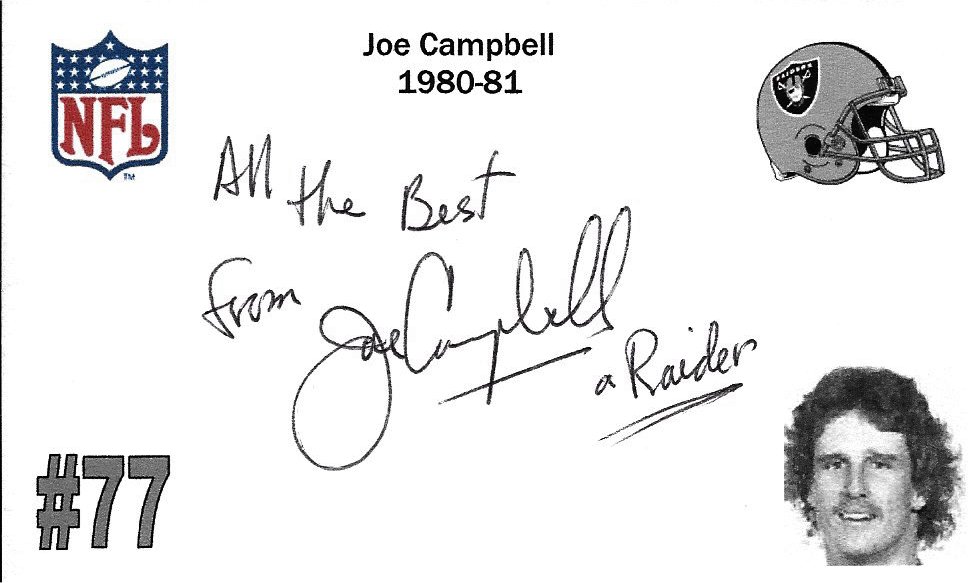 Joe Campbell
1980-81
NFL
TM
All the Best
From Joe Campbell
a Raider
RAIDERS
#77